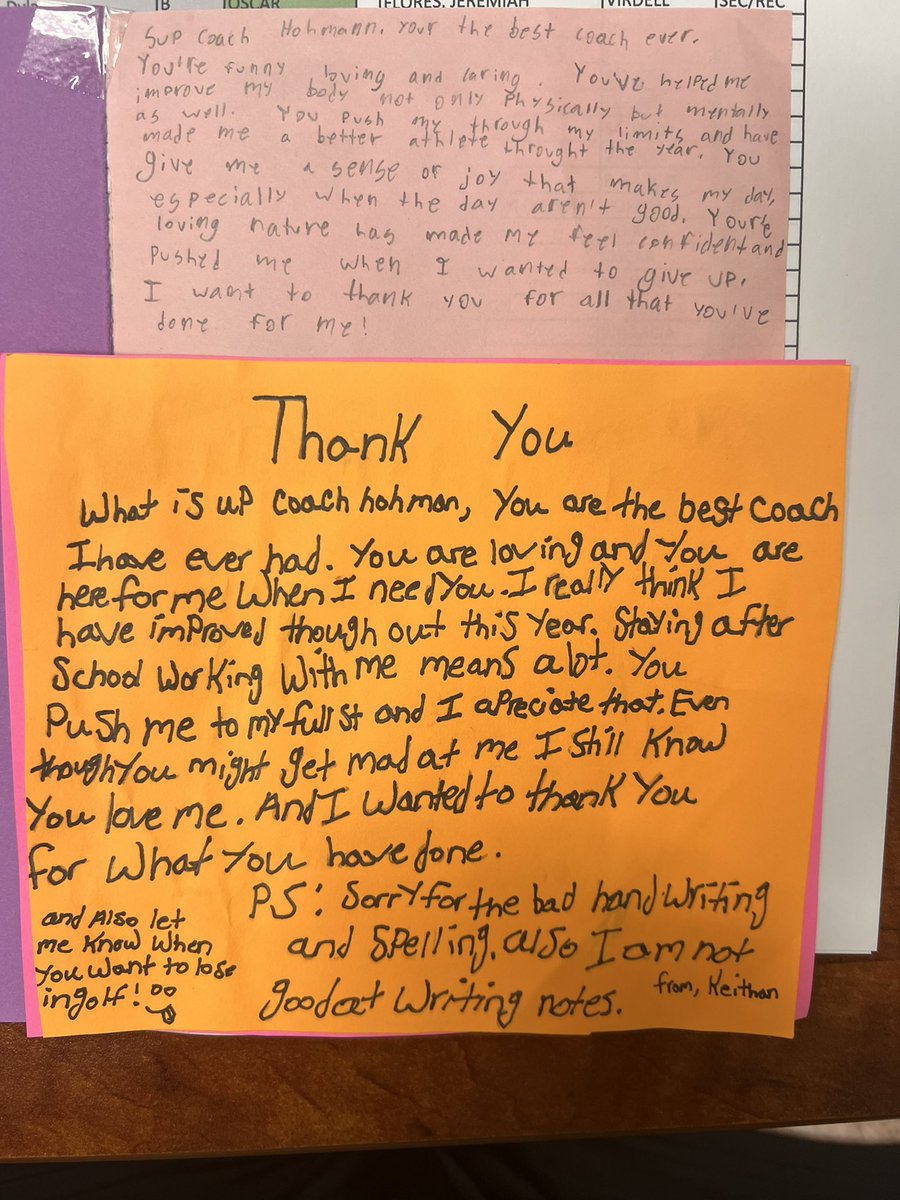 B OSCAR FLORES, JEREMIAH VIRDELL SEC/REC
Sup Coach Hohmann. Your the best coach ever.
You're funny loving and caring. You've helped me
improve my body not only physically but mentally
as well. You push my through my limits and have
made me a better athlete throught the year. You
give me a sense of joy that makes my day,
especially when the day aren't good. Youre
loving nature has made me feel confident and
pushed me when I wanted to give up.
I want to thank you for all that you've
done for me!
Thank You
What is up coach hohman, You are the best coach
I have ever had. You are loving and You are
here for me When I need You. I really think I
have improved though out this Year. Staying after
School Working With me means a lot. You
Push me to my full st and I apreciate that. Even
though You might get mad at me I still Know
You love me. And I Wanted to thank You
for What You have done.
PS: Sorry for the bad hand Writing
and Spelling. also I am not
good at Writing notes.
from, Keithan
and Also let
me Know When
You Want to lose
in golf!